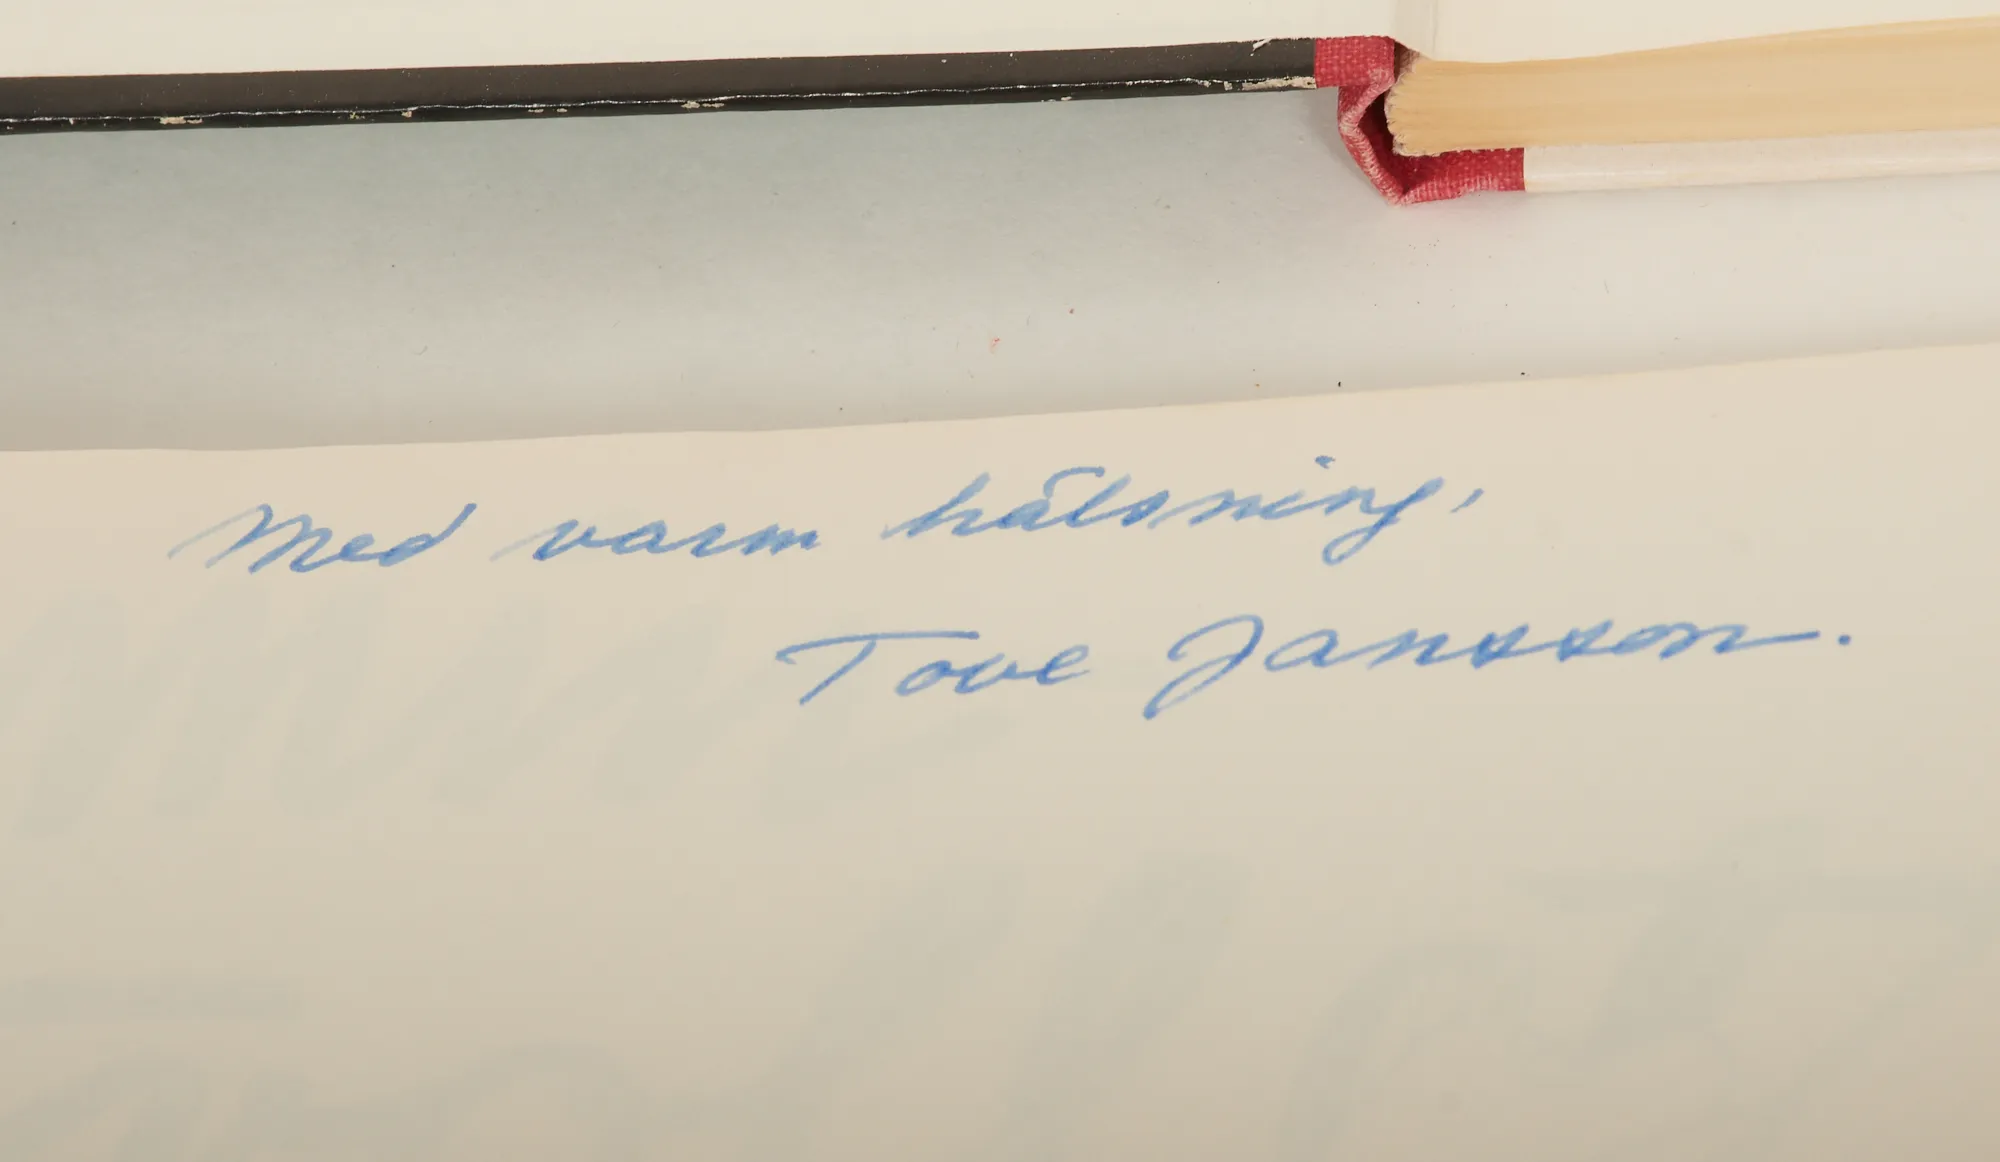 Med varm hälsning,
Tove Jansson.